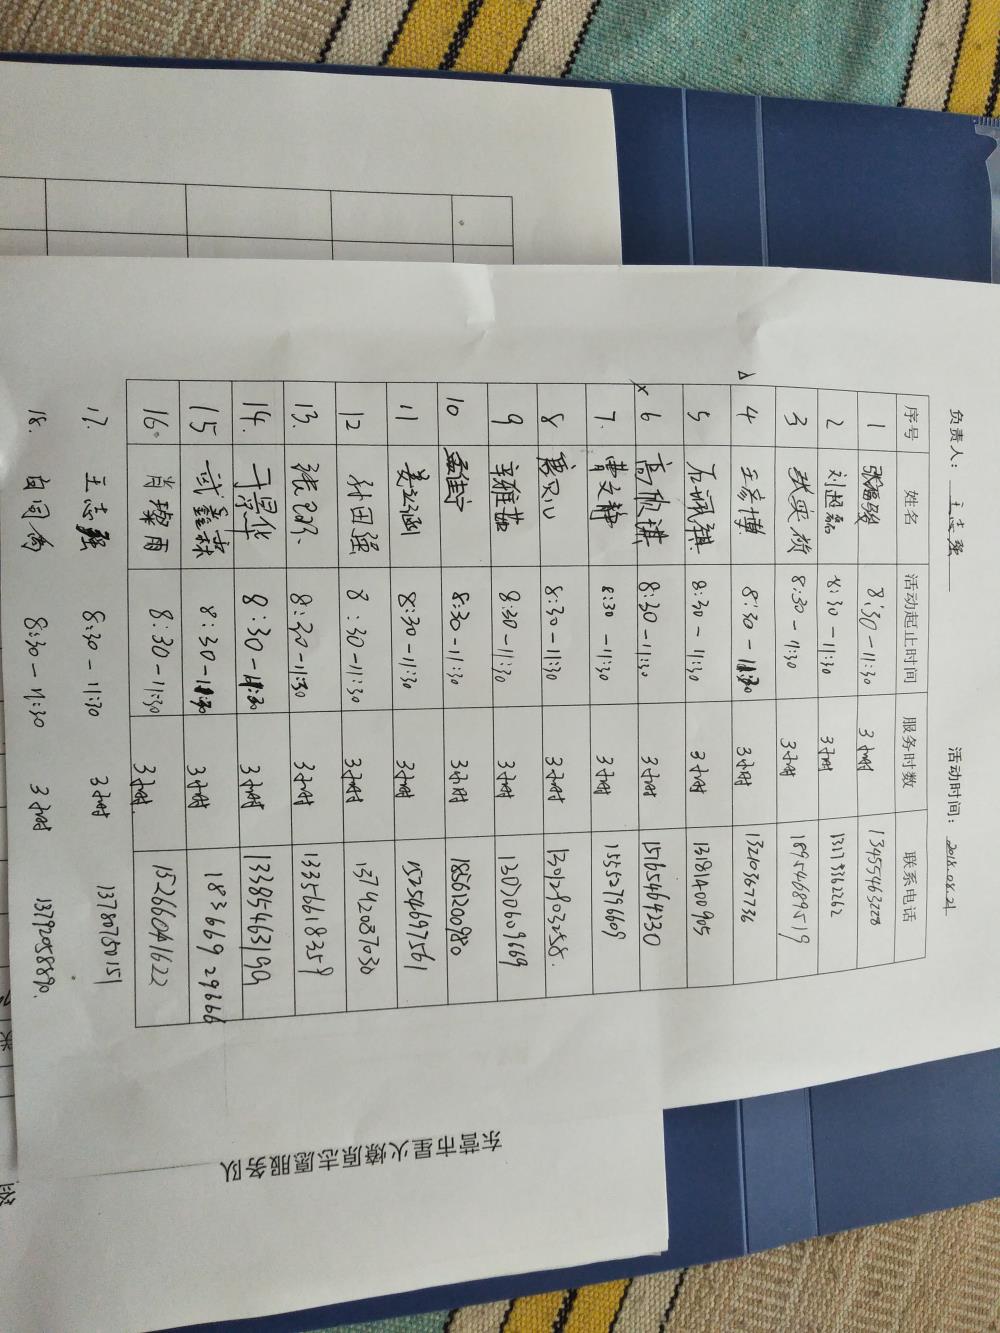 负责人: 王志强 活动时间: 2018.08.21
序号 姓名 活动起止时间 服务时数 联系电话
1 张福骏 8:30-11:30 3小时 13455463228
2 刘超磊 8:30-11:30 3小时 13173362262
3 8:30-11:30 3小时 18954689519
4 王彦博 8:30-11:30 3小时 13210367736
5 8:30-11:30 3小时 13181400905
6 高欣祺 8:30-11:30 3小时 15765464230
7. 曹文静 8:30-11:30 3小时 15552796609
8 8:30-11:30 3小时 13012903258.
9 辛雅茹 8:30-11:30 3小时 13007009669
10 孟宁 8:30-11:30 3小时 18661200980
11 姜文涵 8:30-11:30 3小时 15254697561
12 孙田强 8:30-11:30 3小时 13742087030
13. 8:30-11:30 3小时 13356618359
14. 于景华 8:30-11:30 3小时 13385463199
15 武鑫森 8:30-11:30 3小时 18366929666
16. 肖璨雨 8:30-11:30 3小时. 15266041622
17. 王志强 8:30-11:30 3小时 13780750151
18. 8:30-11:30 3小时 13792058890.
东营市星火燎原志愿服务队